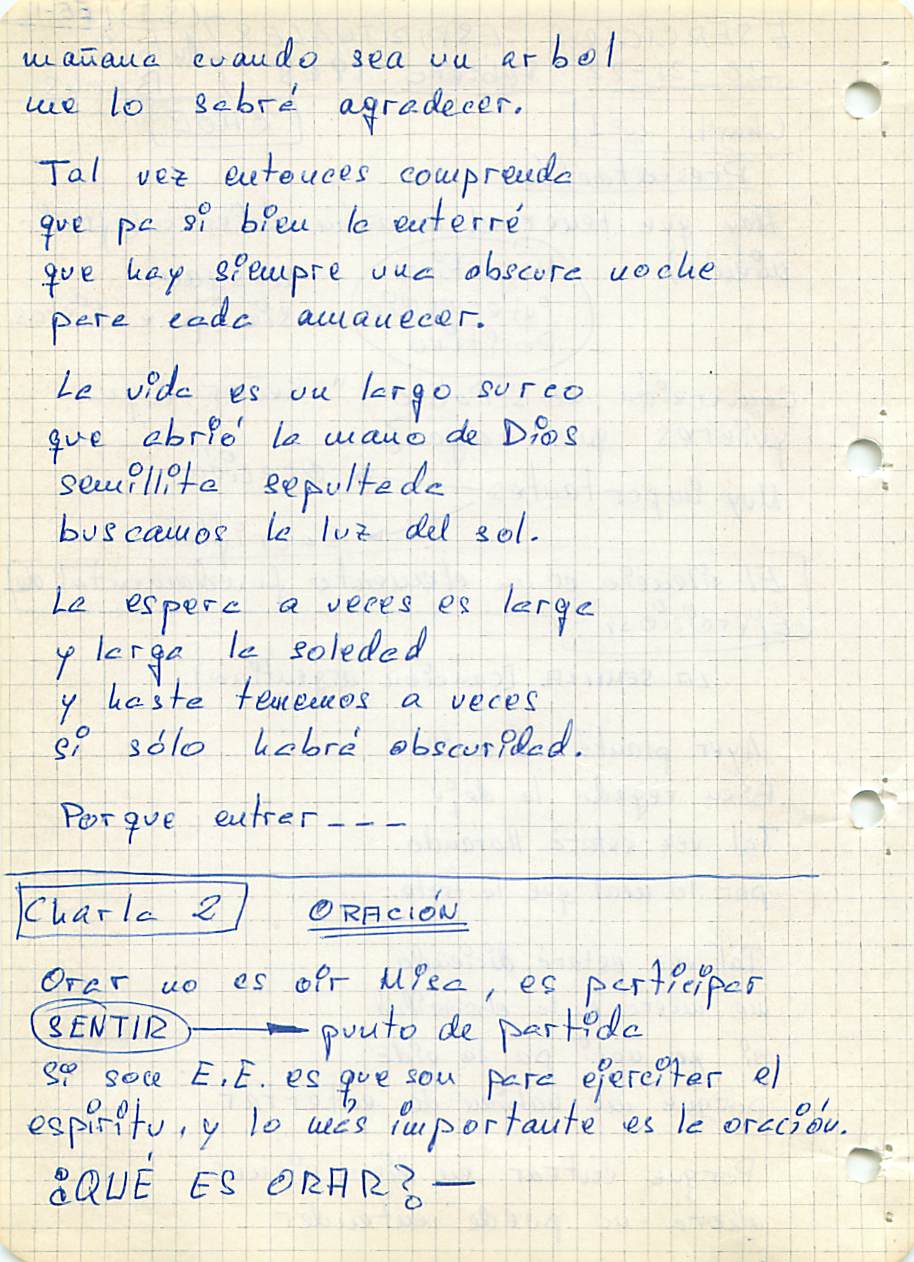 mañana cuando sea un arbol
me lo sabrá agradecer.
Tal vez entonces comprenda
que pa si bien la enterré
que hay siempre una obscura noche
para cada amanecer.
La vida es un largo surco
que abrió la mano de Dios
semillita sepultada
buscamos la luz del sol.
La espera a veces es larga
y larga la soledad
y hasta tememos a veces
si sólo habrá obscuridad.
Porque entrar ---
Charla 2 ORACIÓN
Orar no es oir Misa, es participar
SENTIR → punto de partida
Si son E.E. es que son para ejercitar el
espíritu, y lo más importante es la oración.
¿QUÉ ES ORAR? —